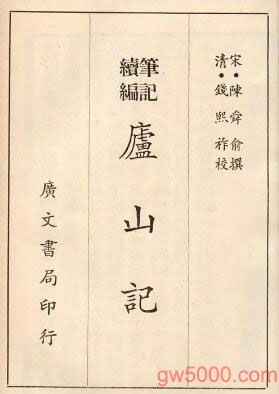 宋·陳舜俞撰
清·錢熙祚校
筆記
續編
廬山記
廣文書局印行
gw5000.com